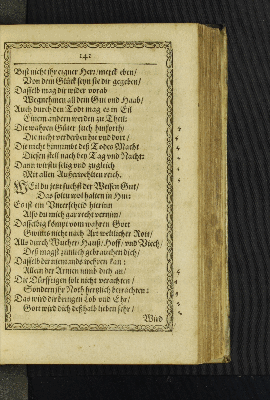 141
Bist nicht ihr eigner Herr/ merck eben/
Von dem Glück seyn sie dir gegeben/
Dasselb mag dir wider vorab
Wegnehmen all dein Gut und Haab/
Auch durch den Todt mag es in Eil
Einem andern werden zu Theil:
Die wahren Güter such hinforth/
Die nicht verderben hie und dort/
Die nicht hinnimbt deß Todes Macht
Diesen stell nach bey Tag und Nacht:
Dann wirstu selig und zugleich
Mit allen Außerwehlten reich.
Weil du jetzt suchst der Weisen Gut/
Das soltu wol halten in Hut:
Es ist ein Unterscheid hierinn
Also du mich gar recht vernim/
Dasselbig kömpt vom wahren Gott
Gwißlis nicht nach Art weltlicher Rott/
Als durch Wucher/ Hauß/ Hoff/ und Viech/
Deß magst zimlich gebrauchen dich/
Dasselb der niemands wehren kan:
Allein der Armen nimb dich an/
Die Dürfftigen solt nicht verachten/
Sondern ihr Noth hertzlich betrachten:
Das wird dir bringen Lob und Ehr/
Gott wird dich deß halb lieben sehr/
Und